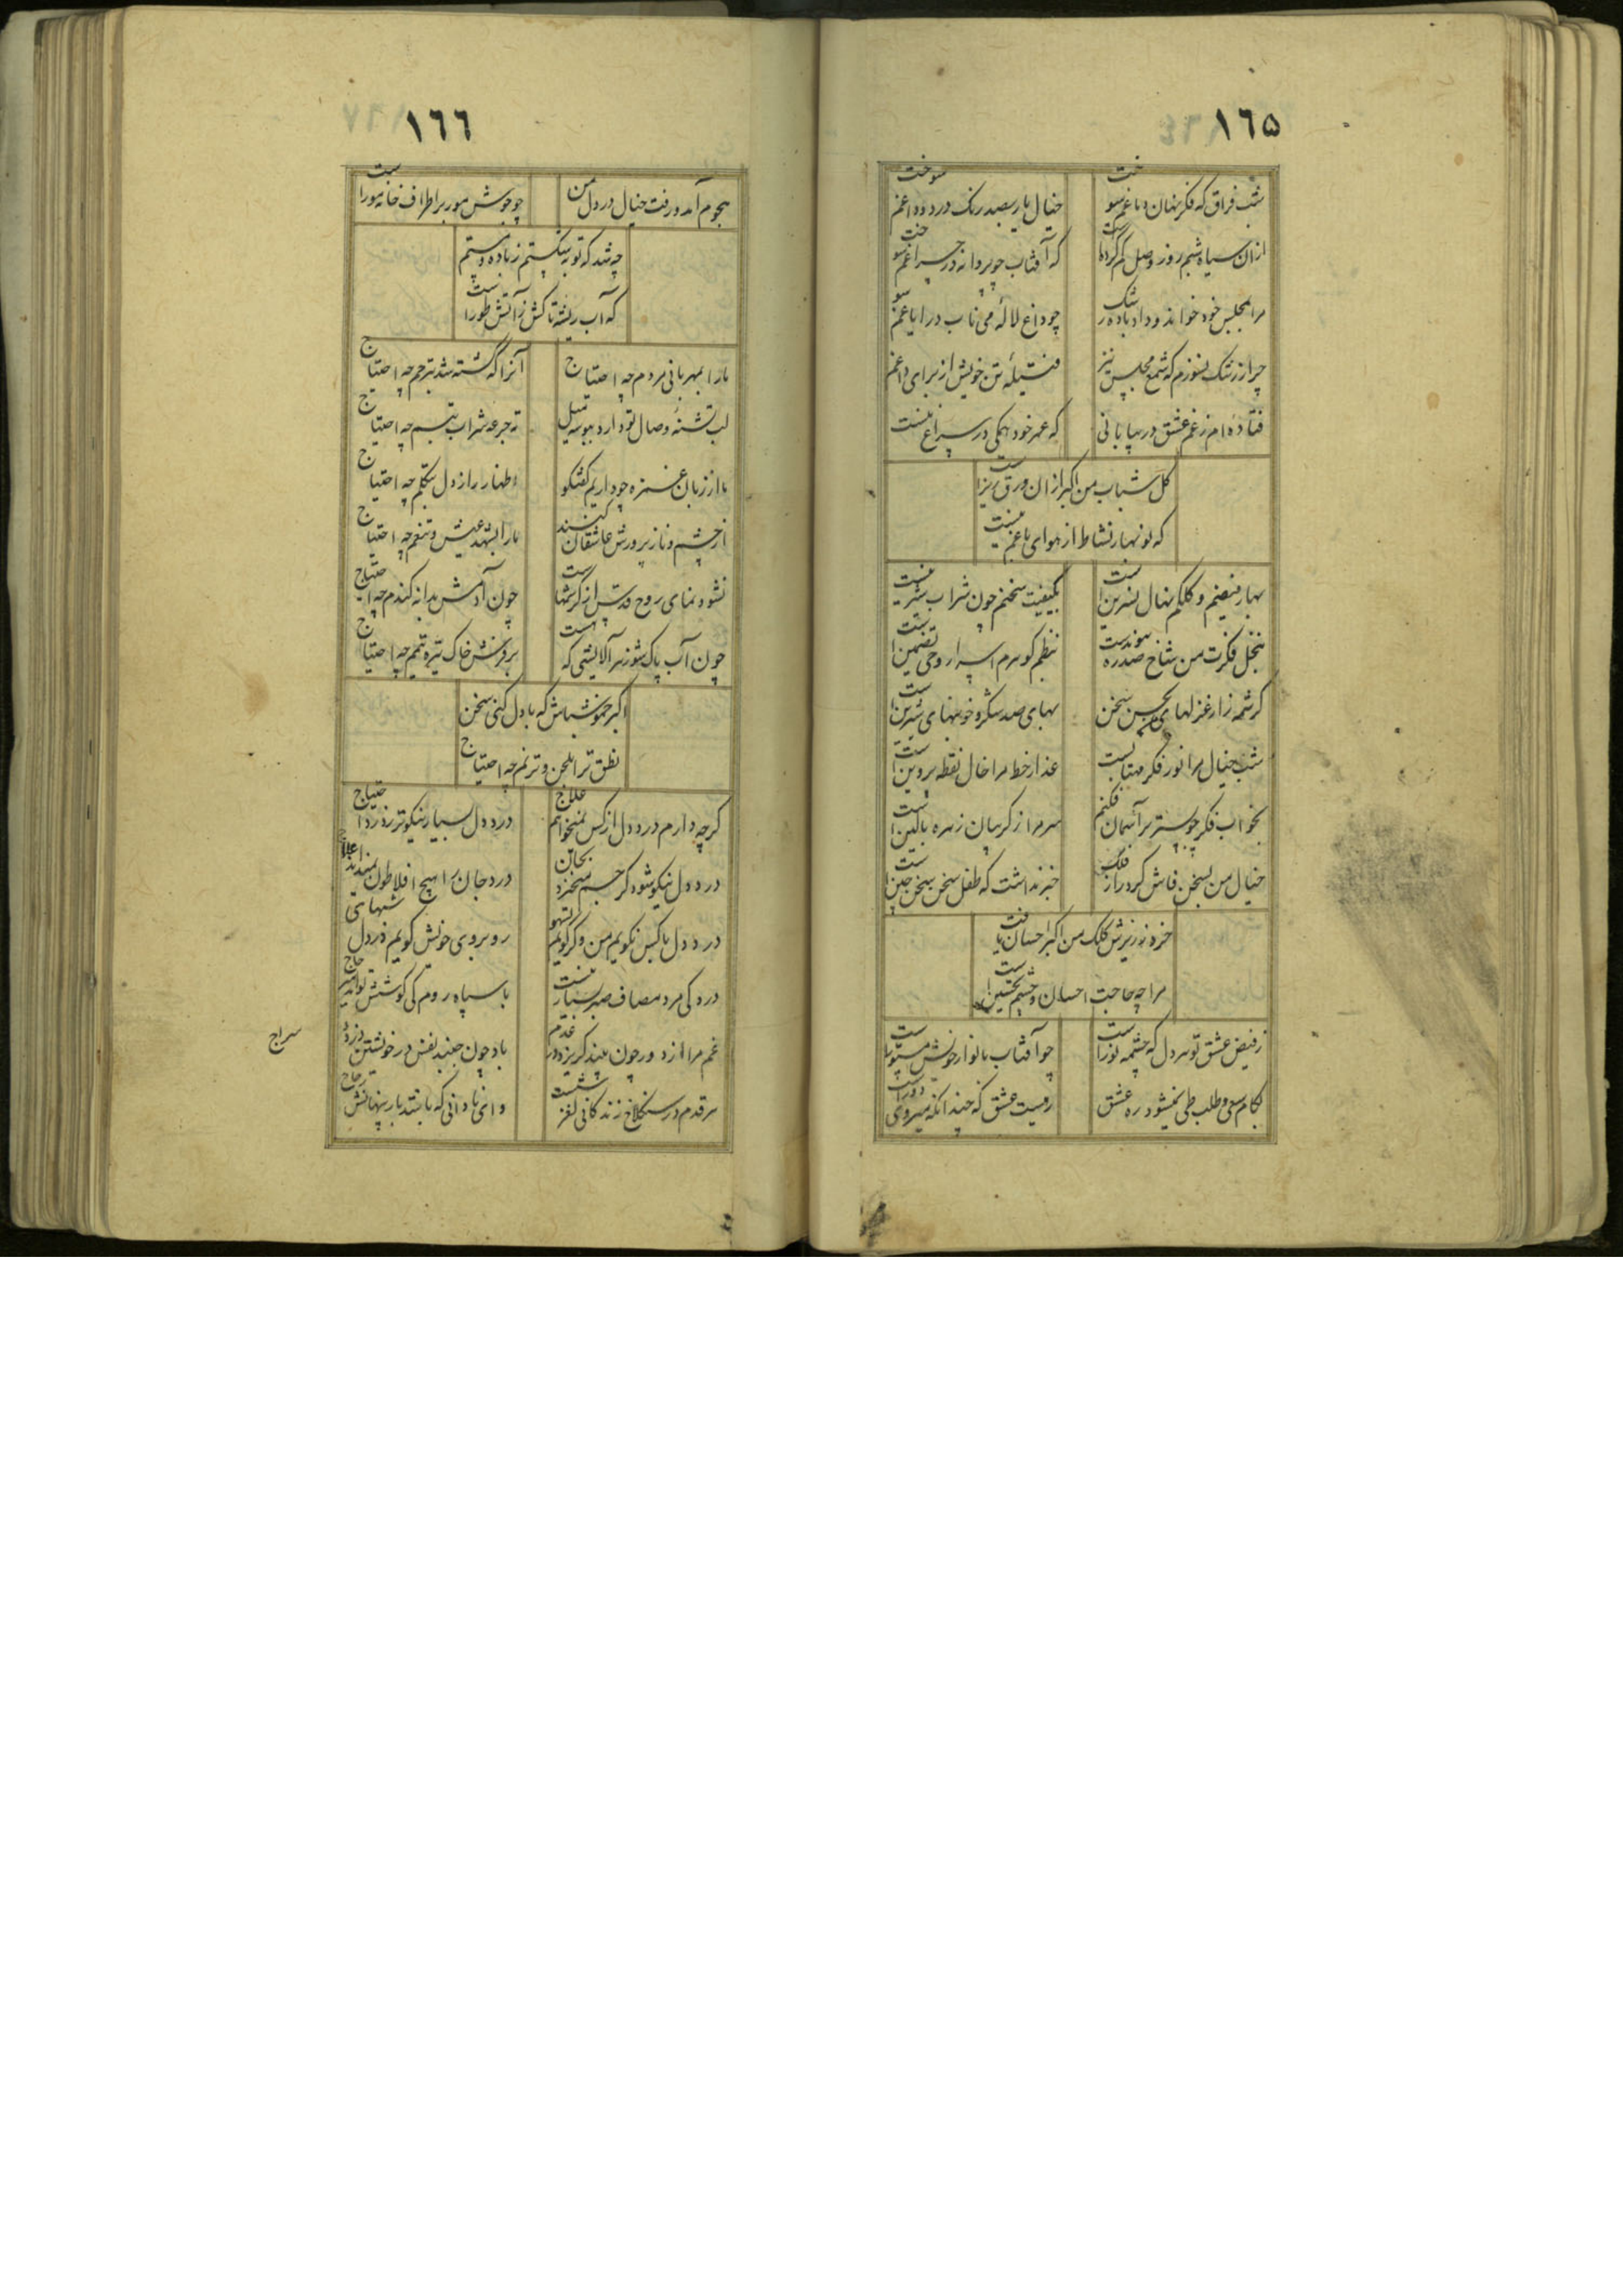 ١٦٥
شب فراق که فکر نهان دماغم سوخت
خیال یار بصد رنک در دو داغم سوخت
ازان سیاه شبم روز وصل کم کرد است
که آفتاب چو پروانه در چراغم سوخت
مرا بمجلس خود خواند و داد باده رشک
چو داغ لاله می ناب در ایاغم سو
چرا ز رشک نسوزم که شمع مجلس نیز
فتیلهٔ تن خویش از برای داغم
فتاده ام ز غم عشق در بیابانی
که عمر خود همکی در سراغ نیست
کل شباب من اکبر ازان ورق ریز است
که نوبهار نشاط از هوای باغم نیست
بهار فیضم و کلکم نهال نسرین است
بکیفیت سخنم چون شراب شیرینست
نخل فکرت من شاخ سدره پیوندست
نظم کوهرم اسرار وحی تضمین است
کرشمه زار غزلهای حسن سخن
بهای صد شکر و خونبهای شیرین است
شب خیال مرا نور فکر مهتابست
عذار خط مرا خال نقطه پروین است
بخواب فکر چو بستر بر آسمان فکنم
سر مرا ز کریبان زهره بالین است
خیال من بسخن فاش کرد راز فلک
خبر نداشت که طفل سخن سخن چین است
خزد نه ریزش کلک من اکبر احسان یافت
مرا چه حاجت احسان و چشم تحسین است
ز فیض عشق تو هر دل که چشمه نور است
چو آفتاب بانوار خویش مستور است
بکام سعی و طلب طی نمیشود ره عشق
رهیست عشق که چندانکه میروی دور است
١٦٦
هجوم آمد و رفت خیال در دل من
چو جوش مور بر اطراف خانه مور است
چه شد که توبه شکستم ز باده مستم
که آب ریشه تاکش ز آتش طور است
ما را بمهربانی مردم چه احتیاج
آنرا که کشته شد بترحم چه احتیاج
لب تشنهٔ وصال تو دارد ببوسه میل
ته جرعه شراب تبسم چه احتیاج
ما از زبان غمزه چو داریم کفتکو
اظهار راز دل بتکلم چه احتیاج
از خشم و ناز پرورش عاشقان کنند
ما را بشهد عیش و تنعم چه احتیاج
نشو و نمای روح قدس از کرشمهاست
چون آدمش بدانه کندم چه احتیاج
چون آب پاک شو ز هر آلایشی که هست
بر فرش خاک تیره تیمم چه احتیاج
اکبر خموش باش که با دل کنی سخن
نطق ترا بلحن و ترنم چه احتیاج
کرچه دارم درد دل از کس نمیخواهم علاج
درد دل بسیار نیکوتر ز درد احتیاج
درد دل نیکو شود کر جسم
درد جان را هیچ افلاطون نمیداند علاج
درد دل با کس نکویم من و کر کویم
رو بروی خویش کویم درد دل شبهای
درد کی مرد مصاف صبر بسیار
با سپاه روم کی کوشش تواند
غم مرا از دور چون بیند کریزد در عدم
باد چون جنبد نفس در خویشتن دزدد
هر قدم در سنکلاخ زندکانی لغزشست
وای نادانی که باشد بار پنهانش زجاج
سراج